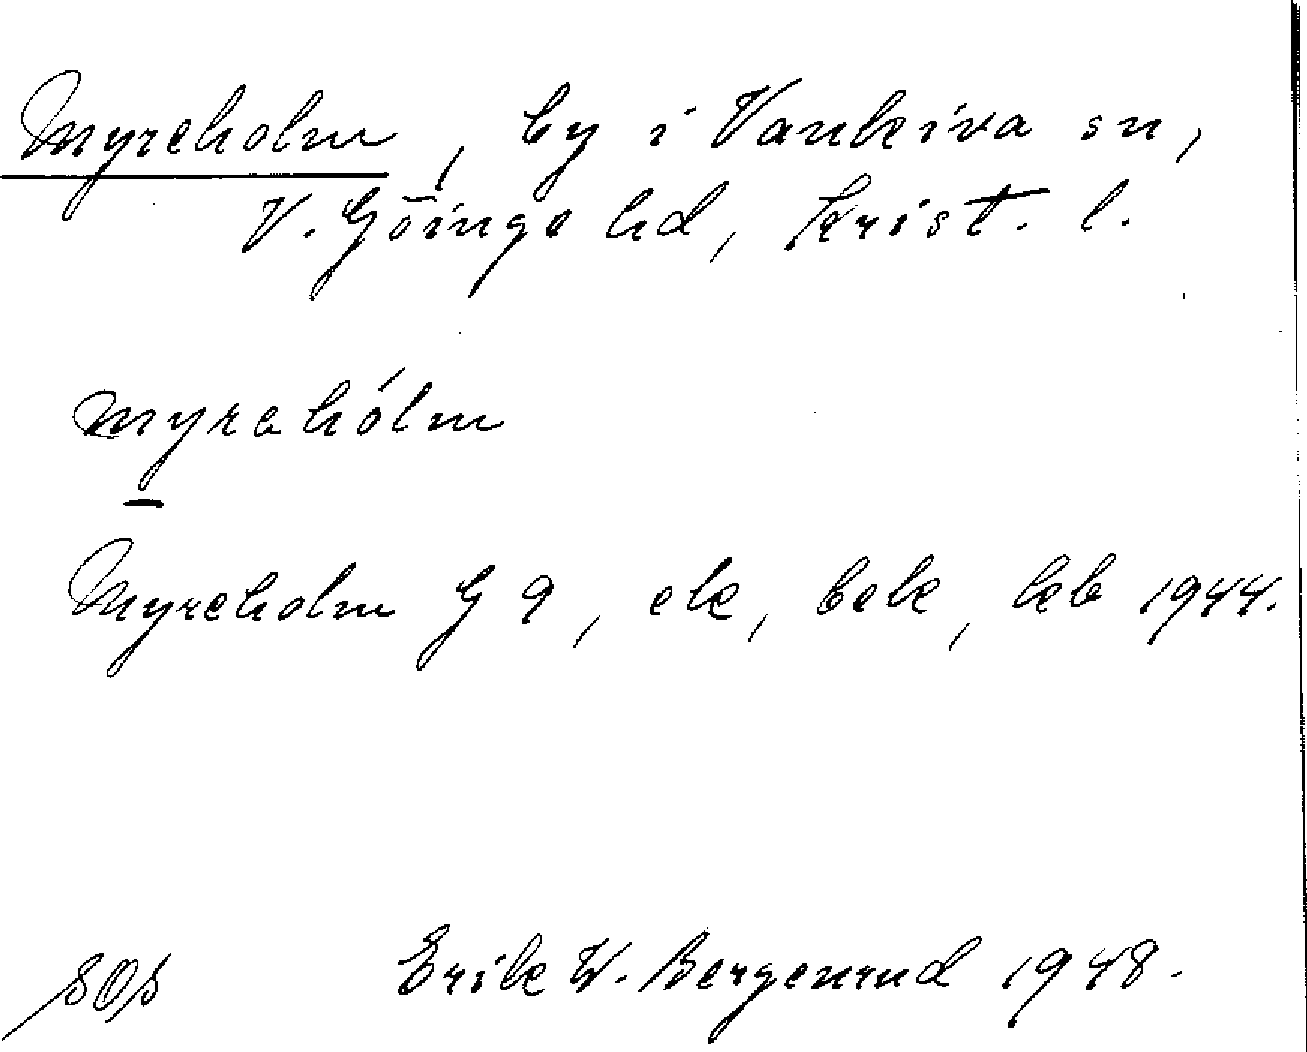 Myreholm, by i Vankiva sn,
V. Göinge hd, Krist. l.
myrahólm
Myreholm G 9, ek, bek, kb 1944.
SOS Erik W. Bergenrud 1948.